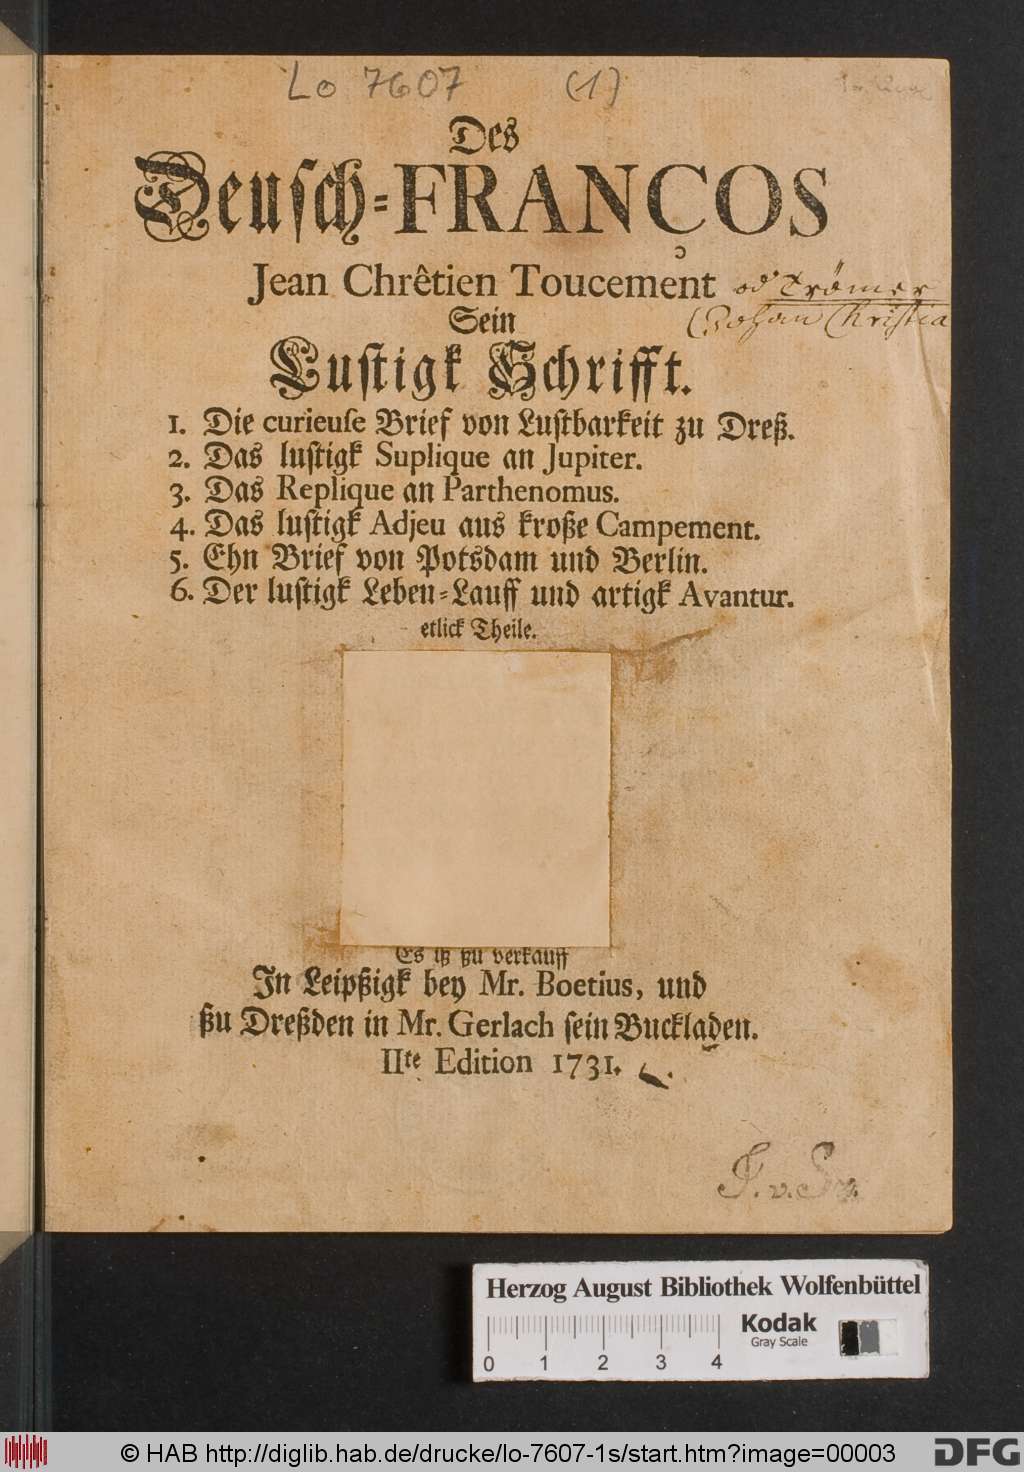 Lo 7607 (1)
Des
Deusch=FRANÇOS
Jean Chrêtien Toucement od Trömer
(Johan Christia
Sein
Lustigk Schrifft.
1. Die curieuse Brief von Lustbarkeit zu Dreß.
2. Das lustigk Suplique an Jupiter.
3. Das Replique an Parthenomus.
4. Das lustigk Adjeu aus kroße Campement.
5. Ehn Brief von Potsdam und Berlin.
6. Der lustigk Leben=Lauff und artigk Avantur.
etlick Theile.
Es iß ßu verkauff
In Leipßigk bey Mr. Boetius, und
ßu Dreßden in Mr. Gerlach sein Buckladen.
IIte Edition 1731.
Herzog August Bibliothek Wolfenbüttel
Kodak
Gray Scale
0 1 2 3 4
© HAB http://diglib.hab.de/drucke/lo-7607-1s/start.htm?image=00003
DFG